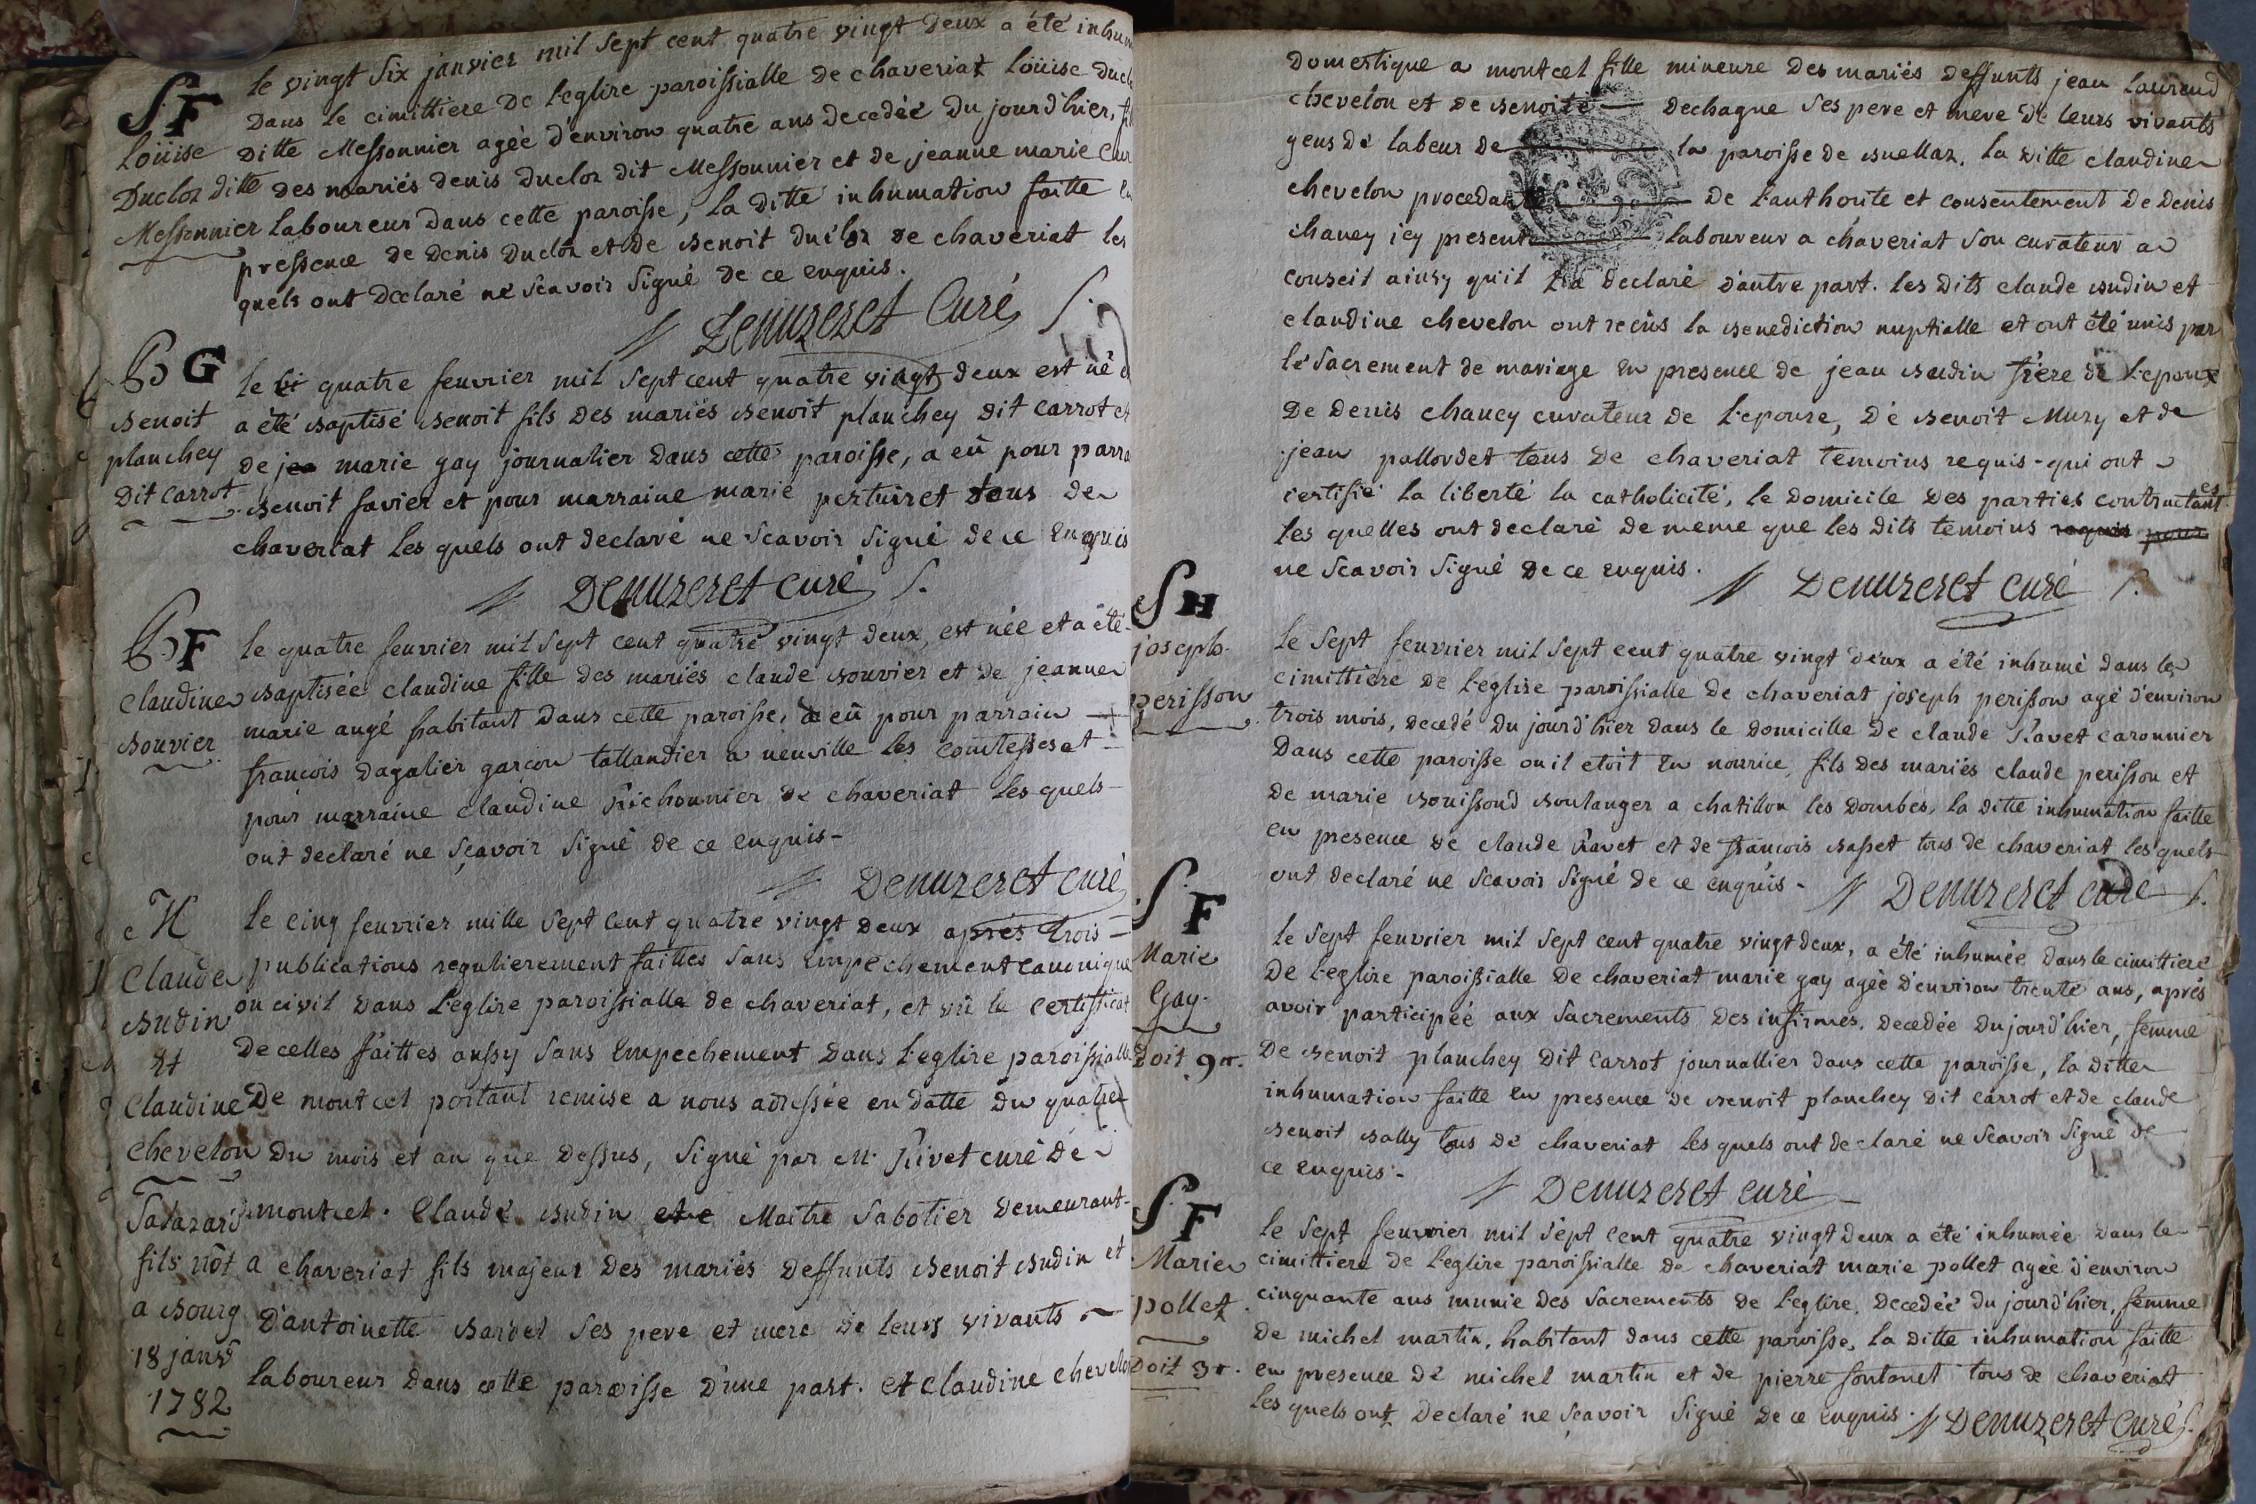 S F
Loüise
Duclos ditte
Messonnier
le vingt Six janvier mil Sept cent quatre vingt Deux a été inhu
Dans le cimittiere De l'eglise paroissialle de chaveriat Loüise Ducl
Ditte Messonnier ageé d'environ quatre ans decedeé Du jourd'hier,
des mariés denis Duclos dit Messonnier et de jeanne marie
laboureur Dans cette paroisse, la Ditte inhumation faitte
pressence de Denis Duclos et de Benoit Duclos de chaveriat les
quels ont Declaré ne Scavoir Signé de ce enquis.
Denuzeret Curé
B G
Benoit
planchey
Dit Carrot
le quatre fevrier mil Sept cent quatre vingt deux est né
a été Baptisé Benoit fils Des mariés Benoit planchey dit Carrot et
de marie gay journalier Dans cette paroisse, a eü pour parra
Benoit favier et pour marraine marie pertuiret tous de
chaveriat les quels ont declaré ne Scavoir Signé de ce Enquis
Denuzeret curé
B F
Claudine
Bouvier
le quatre fevrier mil Sept cent quatre vingt deux, est née et a été
Baptisée claudine fille des mariés claude Bouvier et de jeanne
marie augé habitant Dans cette paroisse, a eü pour parrain
francois Dagalier garçon tallandier a neuville les comtesses et
pour marraine claudine Richonnier de chaveriat les quels
ont declaré ne sçavoir signé de ce enquis
Denuzeret curé
M
Claude
Budin
Et
Claudine
Chevelon
Savarard
fils not
a Bourg
18 janv
1782
le cinq fevrier mille Sept cent quatre vingt deux aprés trois
publications regulierement faittes Sans Empechement canonique
ou civil Dans l'eglise paroissialle de chaveriat, et vü le certifficat
de celles faittes aussy Sans Empechement Dans l'eglise paroissialle
De montcet portant remise a nous adressée en datte du quatre
du mois et an que Dessus, Signé par M. Rivet curé De
montcet. Claude Budin Maitre Sabotier Demeurant
a chaveriat fils majeur Des mariés Deffunts Benoit Budin et
D'antoinette Bardet Ses pere et mere de leurs vivants
laboureur Dans cette paroisse D'une part. et claudine chevelon
Domestique a montcet fille mineure Des mariés deffunts jean Laurend
chevelon et de Benoite Dechagne Ses pere et mere de leurs vivants
gens de labeur de la paroisse de Buellas. La Ditte claudine
chevelon procedant de l'authorité et consentement De Denis
chaney icy present laboureur a chaveriat son curateur a
conseil ainsy qu'il l'a declaré d'autre part. les Dits claude Budin et
claudine chevelon ont recüs la Benediction nuptialle et ont été unis par
le Sacrement de mariage en presence de jean Budin frere de l'epoux
De Denis chaney curateur de l'epouse, De Benoit Mury et de
jean pallordet tous de chaveriat temoins requis qui ont
certifié la liberté la catholicité, le domicile des parties contractantes
les quelles ont declaré de meme que les dits temoins requis pour
ne Scavoir Signé de ce enquis.
Denuzeret curé
S H
joseph
perisson
le Sept fevrier mil Sept cent quatre vingt deux a été inhumé dans le
cimittiere de l'eglise paroissialle de chaveriat joseph perisson agé d'environ
trois mois, decedé du jourd'hier dans le domicille de claude Ravet caronnier
Dans cette paroisse ou il etoit En nourrice, fils des mariés claude perisson et
de marie Bouissoud Boulanger a chatillon les Dombes, la ditte inhumation faitte
en presence de claude Ravet et de francois Basset tous de chaveriat les quels
ont declaré ne Scavoir Signé de ce enquis.
Denuzeret curé
S F
Marie
Gay.
Doit 9#.
le Sept fevrier mil Sept cent quatre vingt deux, a été inhumée dans le cimittiere
De l'eglise paroissialle De chaveriat marie gay ageé d'environ trente ans, aprés
avoir participeé aux Sacrements des infirmes. decedée du jourd'hier, femme
De Benoit planchey Dit Carrot journallier dans cette paroisse, la Ditte
inhumation faitte en presence de Benoit planchey Dit Carrot et de claude
Benoit Bally tous de chaveriat les quels ont declaré ne Scavoir Signé de
ce enquis.
Denuzeret curé
S F
Marie
pollet
Doit 3#.
le Sept fevrier mil Sept Cent quatre vingt deux a été inhumée Dans le
cimittiere de l'eglise paroissialle de chaveriat marie pollet ageé d'environ
cinquante ans munie des Sacrements de l'eglise. decedeé du jourd'hier, femme
de michel martin, habitant dans cette paroisse, la ditte inhumation faitte
en presence de michel martin et de pierre fontanet tous de chaveriat
les quels ont Declaré ne sçavoir signé De ce enquis. Denuzeret Curé